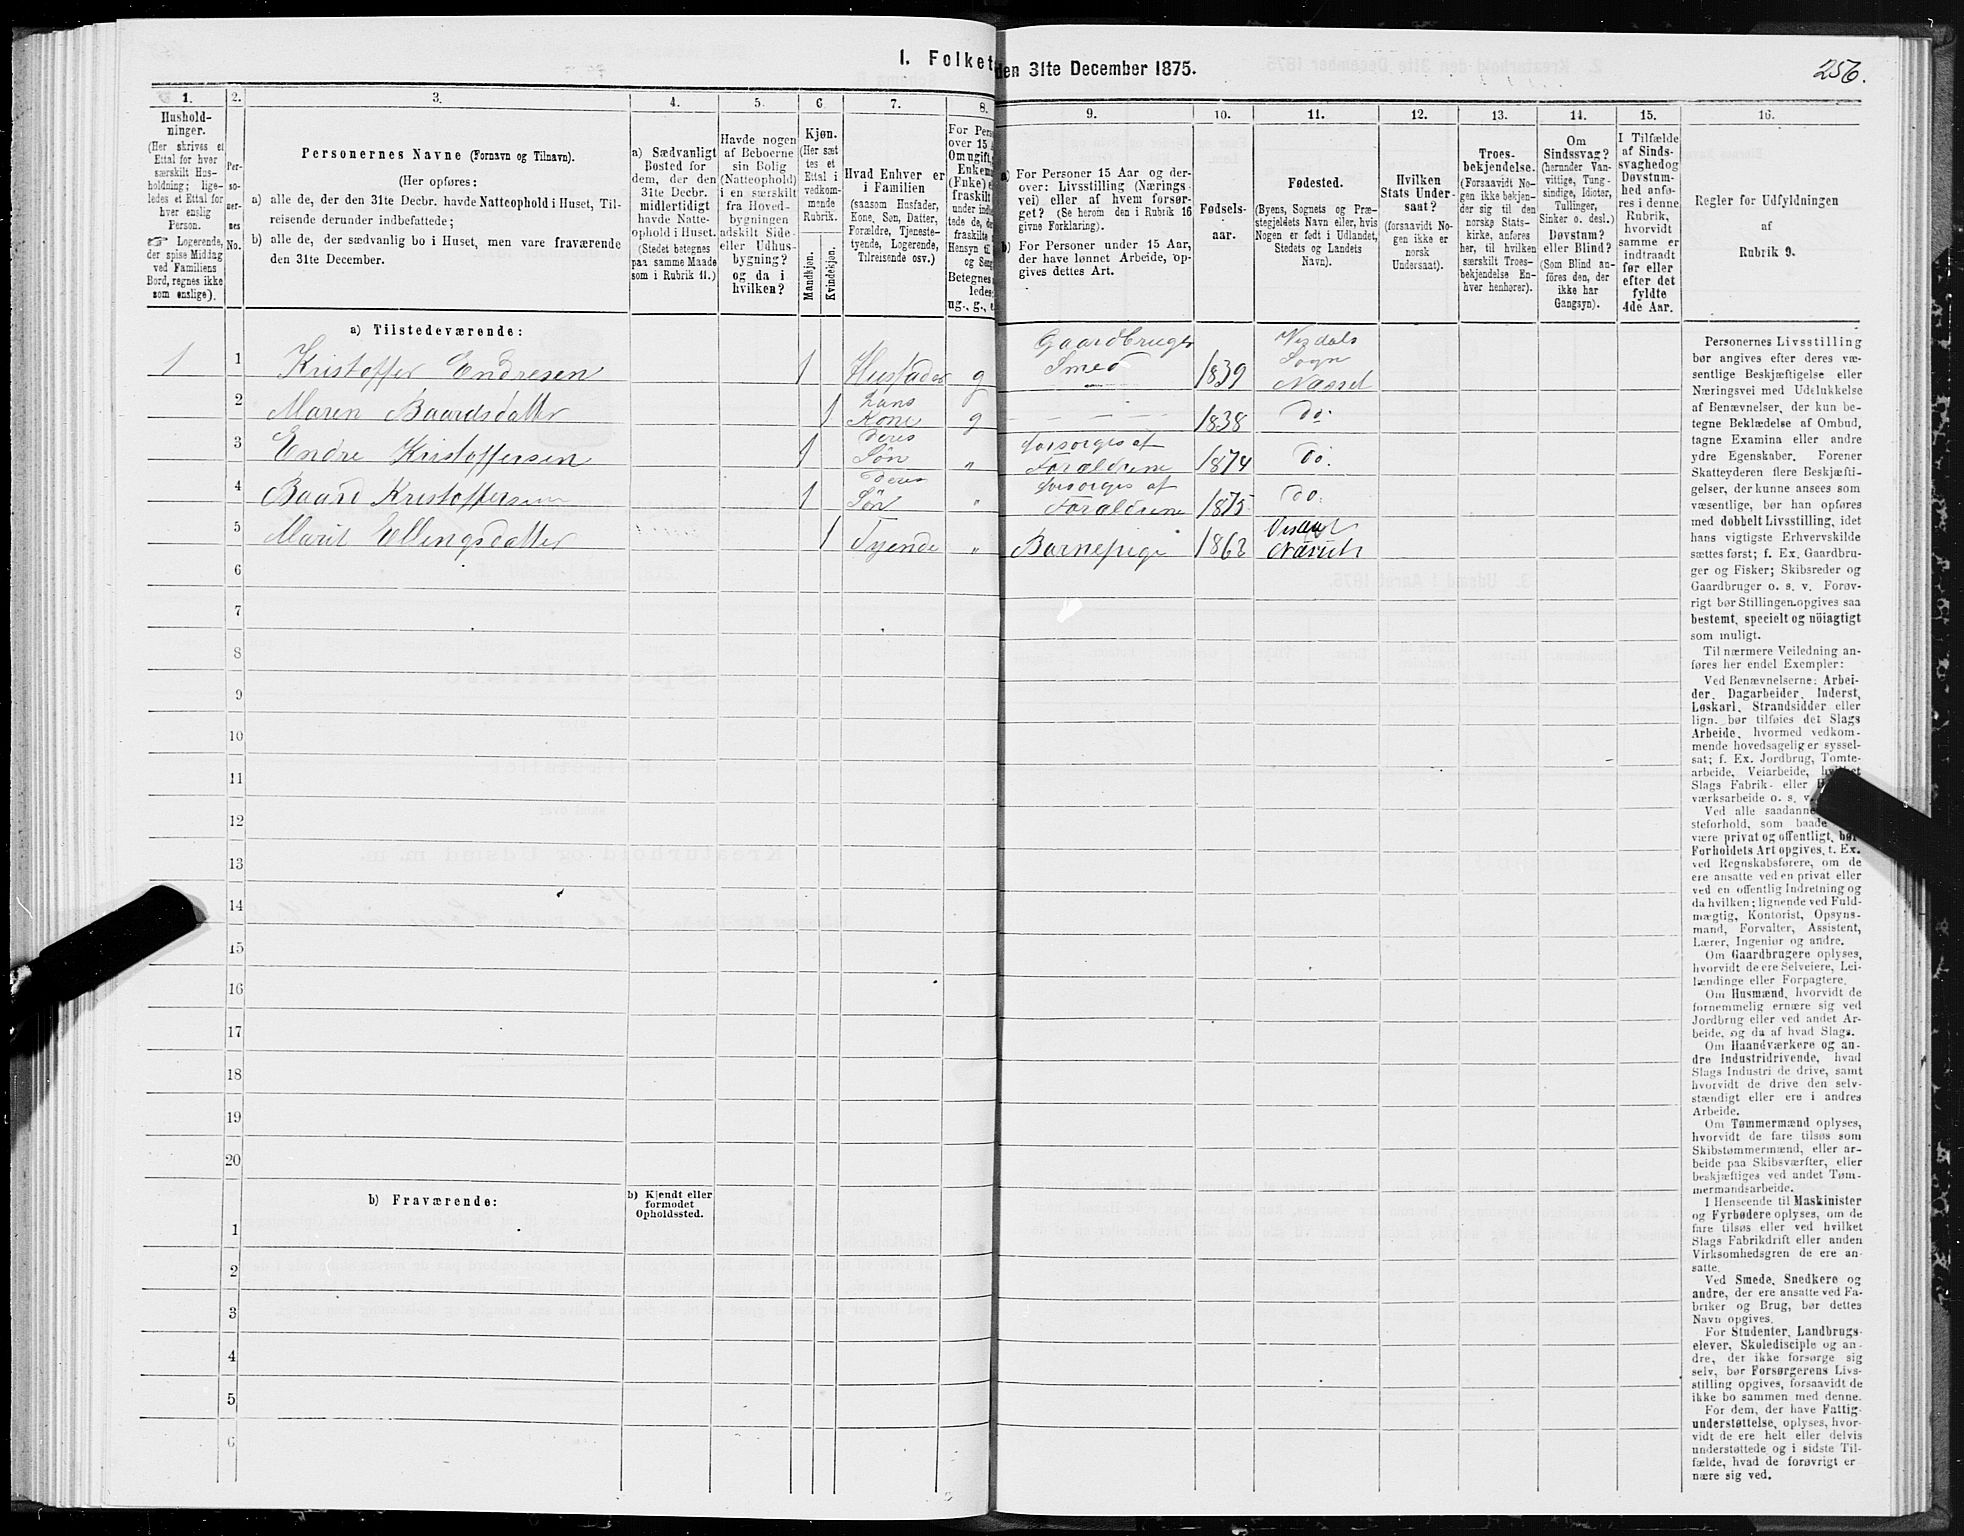 1. Folket
den 31te December 1875.
256.
1.
Hushold-
ninger.
(Her skrives et
Ettal for hver
særskilt Hus-
holdning; lige-
ledes et Ettal for
hver enslig
Person.
☞ Logerende,
der spise Middag
ved Familiens
Bord, regnes ikke
som enslige).
2.
Per-
so-
ner-
nes
No.
3.
Personernes Navne (Fornavn og Tilnavn).
(Her opføres:
a) alle de, der den 31te Decbr. havde Natteophold i Huset, Til-
reisende derunder indbefattede;
b) alle de, der sædvanlig bo i Huset, men vare fraværende
den 31te December.
4.
a) Sædvanligt
Bosted for
dem, der den
31te Decbr.
midlertidigt
havde Natte-
ophold i Huset.
(Stedet betegnes
paa samme Maade
som i Rubrik 11.)
5.
Havde nogen
af Beboerne
sin Bolig
(Natteophold)
i en særskilt
fra Hoved-
bygningen
adskilt Side-
eller Udhus-
bygning?
og da i
hvilken?
6.
Kjøn.
(Her sæt
tes et
Ettal i
vedkom-
mende
Rubrik.
Mandkjøn.
Kvindekjøn.
7.
Hvad Enhver er
i Familien
(saasom Husfader,
Kone, Søn, Datter,
Forældre, Tjeneste-
tyende, Logerende,
Tilreisende osv.)
8.
For Pers
over 15 A
Om ugift,
Enkem
(Enke) e
fraskilt
under indb
tede de, de
fraskilte
Hensyn ti
og Seng
Betegnes
ledes:
ug., g., e
9.
a) For Personer 15 Aar og der-
over: Livsstilling (Nærings-
vei) eller af hvem forsør-
get? (Se herom den i Rubrik 16
givne Forklaring).
b) For Personer under 15 Aar,
der have lønnet Arbeide, op-
gives dettes Art.
10.
Fødsels-
aar.
11.
Fødested.
(Byens, Sognets og Præ-
stegjeldets Navn eller, hvis
Nogen er født i Udlandet,
Stedets og Landets
Navn).
12.
Hvilken
Stats Under-
saat?
(forsaavidt No-
gen ikke er
norsk
Undersaat).
13.
Troes-
bekjendelse.
(Forsaavidt No-
gen ikke bekjen-
der sig til den
norske Stats-
kirke, anføres
her, til hvilken
særskilt Troes-
bekjendelse En-
hver henhører).
14.
Om
Sindssvag?
(herunder Van-
vittige, Tung-
sindige, Idioter,
Tullinger,
Sinker o. desl.)
Døvstum?
eller Blind?
(Som Blind an-
føres den, der
ikke har
Gangsyn).
15.
I Tilfælde
af Sinds-
svaghed og
Døvstum-
hed anfø-
res i denne
Rubrik,
hvorvidt
samme er
indtraadt
før eller
efter det
fyldte
4de Aar.
16.
Regler for Udfyldningen
af
Rubrik 9.
a) Tilstedeværende:
1 1 Kristoffer Endresen 1 Husfader g Gaardbruger Smed 1839 Visdals Sogn Nesset
2 Maren Baardsdatter 1 hans Kone g 1838 do.
3 Endre Kristoffersen 1 deres Søn „ forsørges af Forældrene 1874 do.
4 Baard Kristoffersen 1 deres Søn „ forsørges af Forældrene 1875 do.
5 Marit Ellingsdatter 1 Tyende „ Barnepige 1862
6
7
8
9
10
11
12
13
14
15
16
17
18
19
20
b) Fraværende:
b) Kjendt eller
formodet
Opholdssted.
1
2
3
4
5
6
Personernes Livsstilling
bør angives efter deres væ-
sentlige Beskjæftigelse eller
Næringsvei med Udelukkelse
af Benævnelser, der kun be-
tegne Beklædelse af Ombud,
tagne Examina eller andre
ydre Egenskaber. Forener
Skatteyderen flere Beskjæfti-
gelser, der kunne ansees som
væsentlige, bør han opføres
med dobbelt Livsstilling, idet
hans vigtigste Erhvervskilde
sættes først; f. Ex. Gaardbru-
ger og Fisker; Skibsreder og
Gaardbruger o. s. v. Forøv-
rigt bør Stillingen opgives saa
bestemt, specielt og nöiagtigt
som muligt.
Til nærmere Veiledning an-
føres her endel Exempler:
Ved Benævnelserne: Arbei-
der, Dagarbeider, Inderst,
Løskarl, Strandsidder eller
lign. bør tilføies det Slags
Arbeide, hvormed vedkom-
mende hovedsagelig er syssel-
sat; f. Ex. Jordbrug, Tomte-
arbeide, Veiarbeide, hvilket
Slags Fabrik- eller
værksarbeide o. s. v.
Ved alle saadanne
steforhold, som baade
være privat og offentligt, bør
Forholdets Art opgives, t. Ex.
ved Regnskabsførere, om de
ere ansatte ved en privat eller
ved en offentlig Indretning og
da hvilken; lignende ved Fuld-
mægtig, Kontorist, Opsyns-
mand, Forvalter, Assistent,
Lærer, Ingeniør og andre.
Om Gaardbrugere oplyses,
hvorvidt de ere Selveiere, Lei-
lændinge eller Forpagtere.
Om Husmænd, hvorvidt de
fornemmelig ernære sig ved
Jordbrug eller ved andet Ar-
beide, og da af hvad Slags.
Om Haandværkere og an-
dre Industridrivende, hvad
Slags Industri de drive, samt
hvorvidt de drive den selv-
stændigt eller ere i andres
Arbeide.
Om Tømmermænd oplyses,
hvorvidt de fare tilsøs som
Skibstømmermænd, eller ar-
beide paa Skibsværfter, eller
beskjæftiges ved andet Tøm-
mermandsarbeide.
I Henseende til Maskinister
og Fyrbødere oplyses, om de
fare tilsøs eller ved hvilket
Slags Fabrikdrift eller anden
Virksomhedsgren de ere an-
satte.
Ved Smede, Snedkere og
andre, der ere ansatte ved Fa-
briker og Brug, bør dettes
Navn opgives.
For Studenter, Landbrugs-
elever, Skoledisciple og an-
dre, der ikke forsørge sig
selv, bør Forsørgerens Livs-
stilling opgives, forsaavidt de
ikke bo sammen med denne.
For dem, der have Fattig-
understøttelse, oplyses, hvor-
vidt de ere helt eller delvis
understøttede og i sidste Til-
fælde, hvad de forøvrigt er-
nære sig ved.